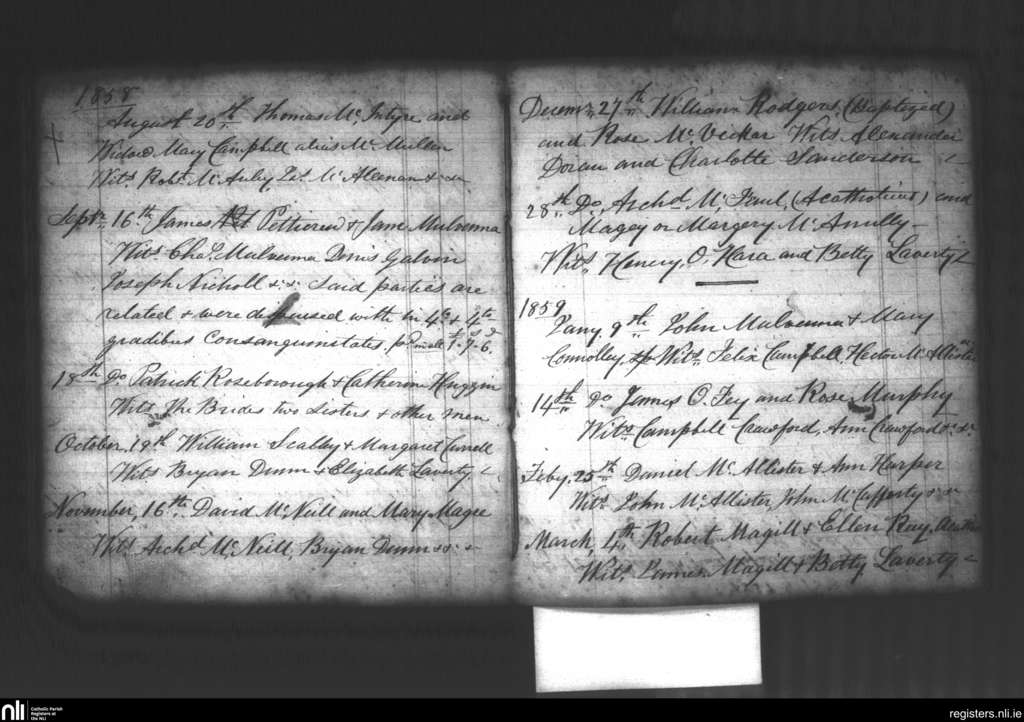 1858
August 20th Thomas Mc Intyre and
Widow Mary Campbell alias Mc Mullen
Wits Robt Mc Auley, Mc Aleenan &c &c
Septr 16th James Pettierew & Jane Mulvenna
Wits Chas Mulvenna Denis Galvin
Joseph Nicholl &c &c Said parties are
related & were dispensed with in 4to & 4to
gradibus Consanguinitatis. pd 1-7-6.
18th Do Patrick Roseborough & Catherine Huggin
Wits The Brides two Sisters & other men
October, 19th William Scally & Margaret
Wits Bryan Dunn & Elizabeth Laverty
November, 16th David Mc Neill and Mary Magee
Wits Archd Mc Neill, Bryan Dunn &c &c
Decemr 27th William Rodgers, (Baptized)
and Rose Mc Vicker Wits Alexander
Doran and Charlotte Sanderson
28th Do Archd Mc Faul, (Acatholicus) and
Magey or Margery Mc Anully
Wits Henery O, Hara and Betty Laverty
1859
Jany 9th John Mulvenna & Mary
Connolley. Wits Felix Campbell, Hector Mc Allister
14th Do James O, Fey and Rose Murphy
Wits Campbell Crawford, Ann Crawford &c &c
Feby. 25th Daniel Mc Allister & Ann Harper
Wits John Mc Allister, John Mc Cafferty &c &c
March, 4th Robert Magill & Ellen Ray,
Wits James Magill & Betty Laverty
nli
Catholic Parish
Registers at
the NLI
registers.nli.ie